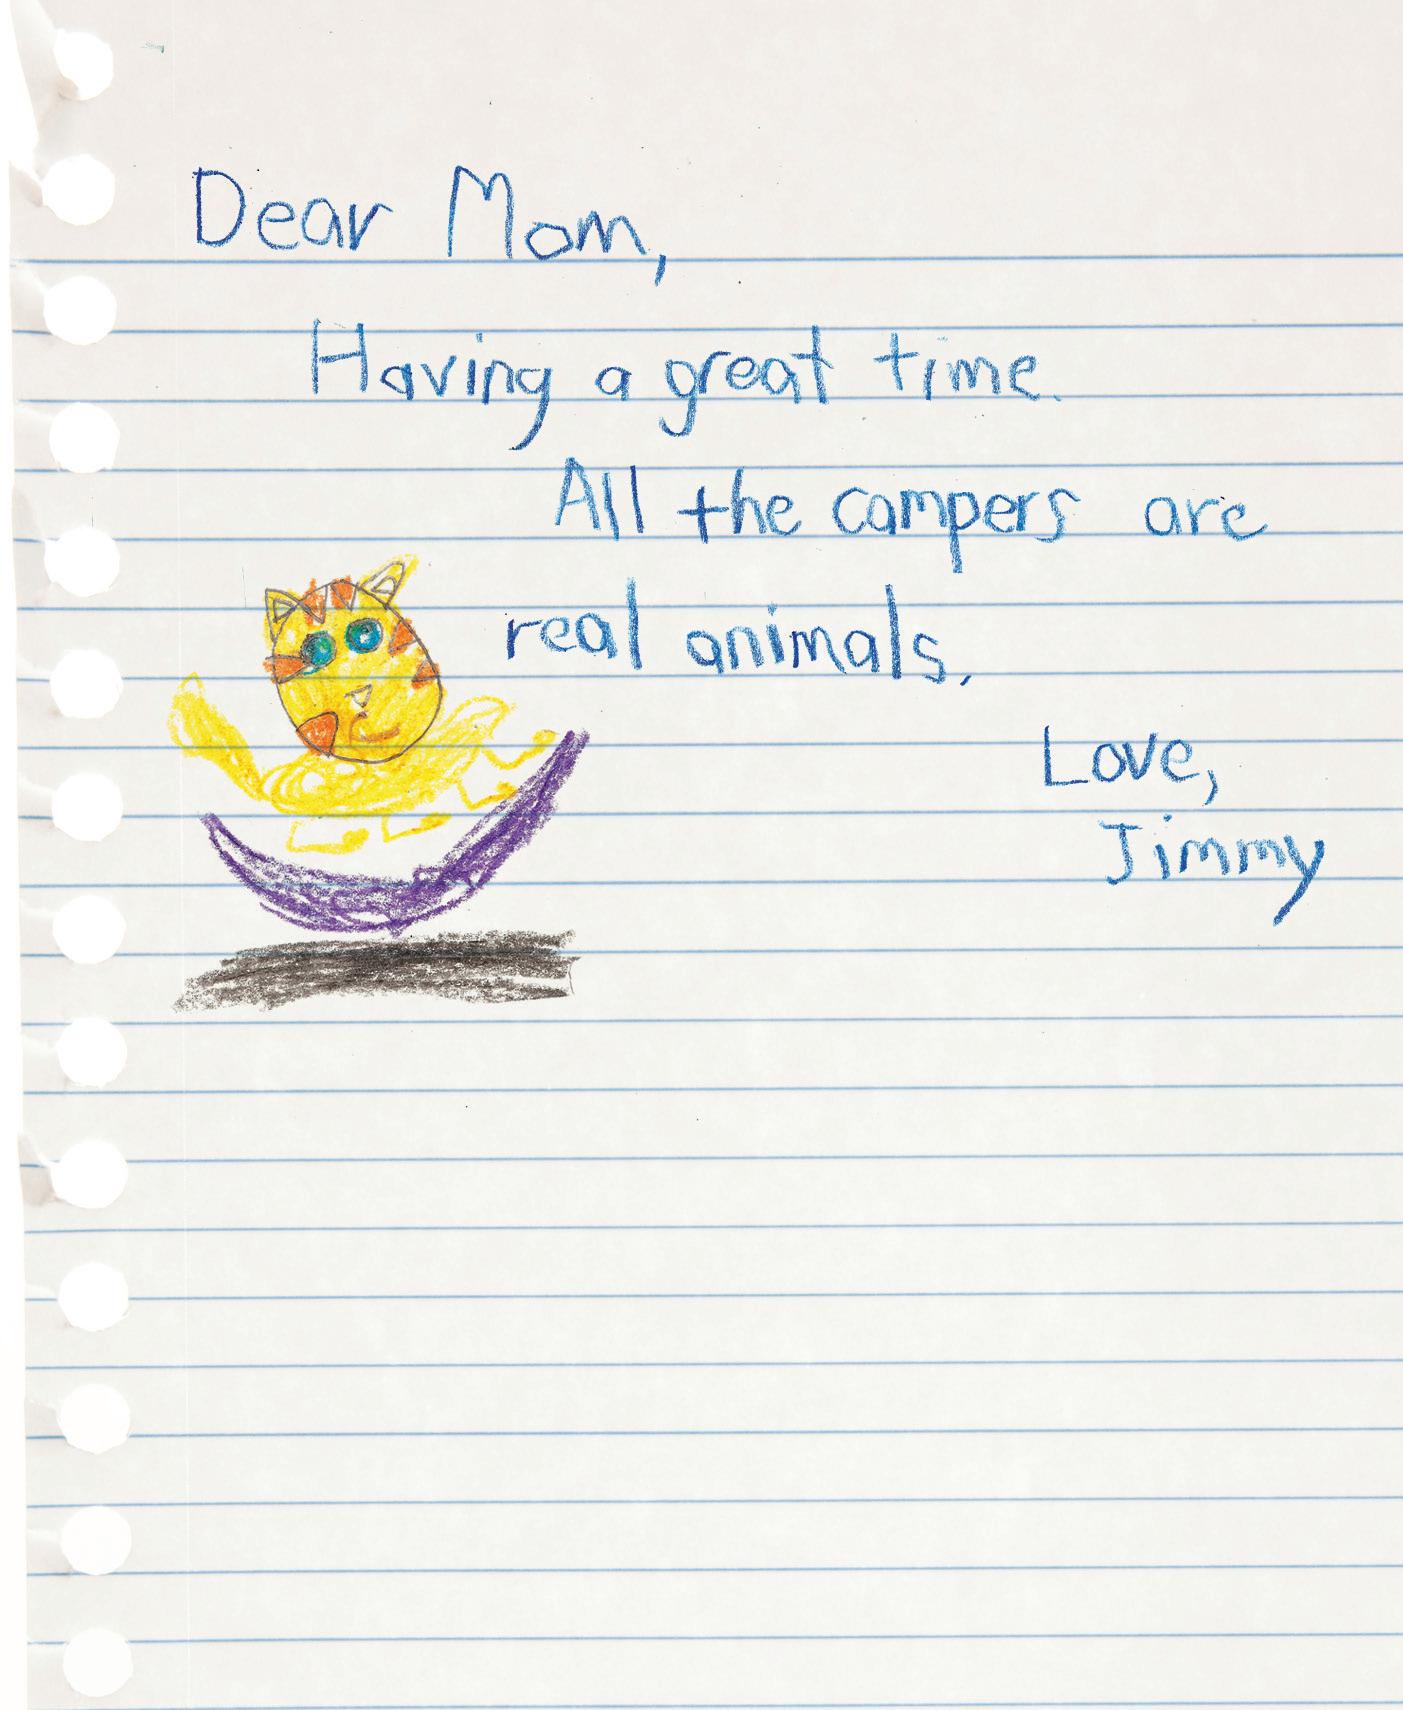 Dear Mom,
Having a great time.
All the campers are
real animals.
Love,
Jimmy